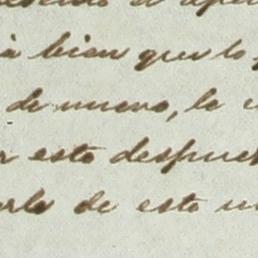 á bien que lo
de nuevo, la
esto despues
arla de este